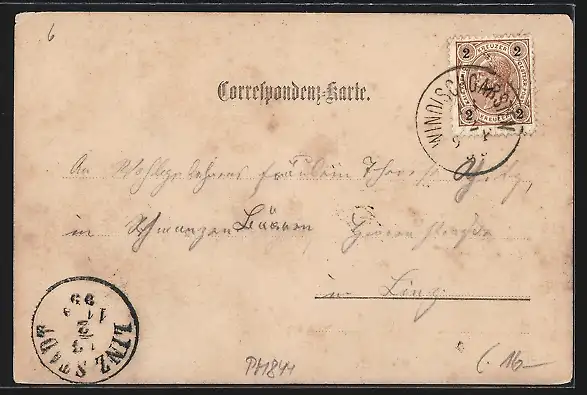 6
2 KREUZER 2
2 KREUZER 2
WINDISCHGARSTEN
Correspondenz-Karte.
An Wohlgeboren Fräulein Therese
in Schwarzen Bären Herrenstraße
in Linz
LINZ STADT
13
3
11 A
99
PH1844
16-